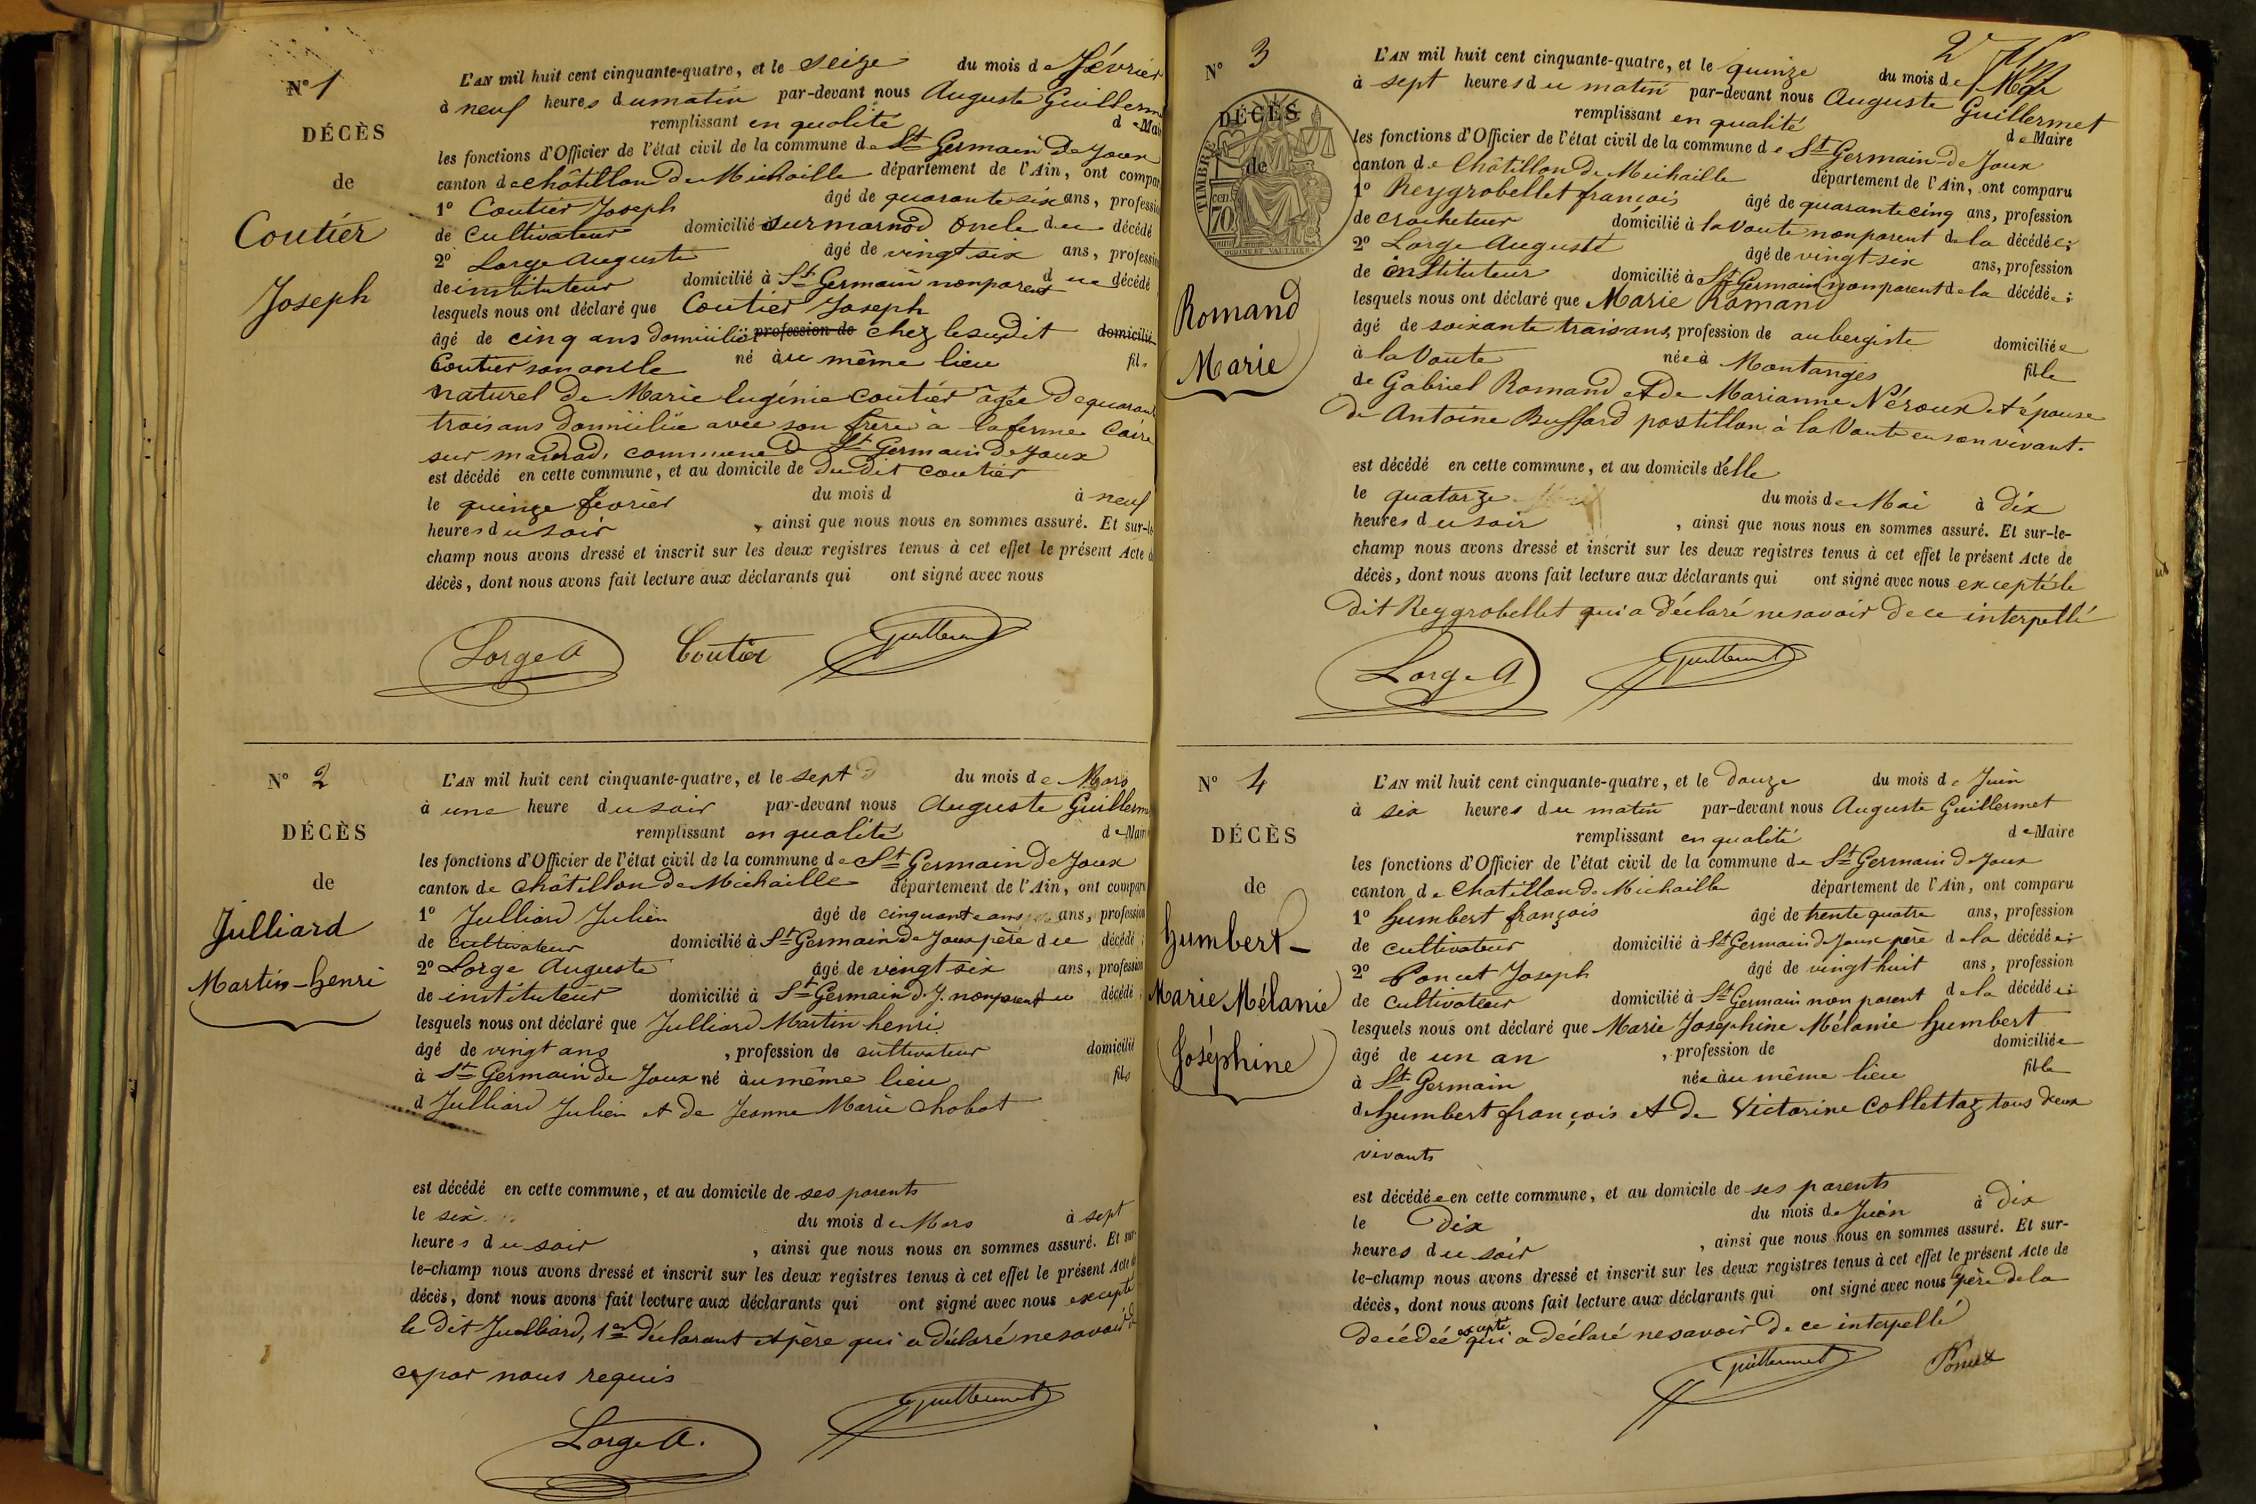 N° 1
DÉCÈS
de
Coutier
Joseph
L'AN mil huit cent cinquante-quatre, et le seize du mois de février
à neuf heures du matin par-devant nous Auguste Guillerm
remplissant en qualité de Mai
les fonctions d'Officier de l'état civil de la commune de St Germain De Joux
canton de châtillon De Michaille département de l'Ain, ont compar
1° Coutier Joseph âgé de quarante six ans, professio
de Cultivateur domicilié à surmarnod Oncle du décédé
2° Lorge Auguste âgé de vingt six ans, professio
de instituteur domicilié à St Germain nonparent du décédé
lesquels nous ont déclaré que Coutier Joseph
âgé de cinq ans domicilié profession de chez lesudit domicilié
Coutier son oncle né àu même lieu fils
naturel de Marie Eugénie Coutier âgée De quaran
trois ans domiciliée avec son frère à la ferme
sur marnod, commune D St Germain De Joux
est décédé en cette commune, et au domicile de du dit Coutier
le quinze fevrier du mois d à neuf
heures du soir , ainsi que nous nous en sommes assuré. Et sur-le
champ nous avons dressé et inscrit sur les deux registres tenus à cet effet le présent Acte d
décès, dont nous avons fait lecture aux déclarants qui ont signé avec nous
Lorge A Coutier Guillermet
N° 2
DÉCÈS
de
Julliard
Martin-henri
L'AN mil huit cent cinquante-quatre, et le sept du mois de Mars
à une heure du soir par-devant nous Auguste Guillerm
remplissant en qualité de Mair
les fonctions d'Officier de l'état civil de la commune de St Germain De Joux
canton de châtillon De Michaille département de l'Ain, ont compar
1° Julliard Julien âgé de cinquante ans ans, profession
de cultivateur domicilié à St Germain De Joux père du décédé ;
2° Lorge Auguste âgé de vingt six ans, profession
de instituteur domicilié à St Germain d. J. nonparent du décédé ;
lesquels nous ont déclaré que Julliard Martin henri
âgé de vingt ans , profession de cultivateur domicilié
à St Germain de Joux né àu même lieu fils
d Julliard Julien et De Jeanne Marie Chobot
est décédé en cette commune, et au domicile de ses parents
le six du mois de Mars à sept
heures du soir , ainsi que nous nous en sommes assuré. Et sur-
le-champ nous avons dressé et inscrit sur les deux registres tenus à cet effet le présent Acte de
décès, dont nous avons fait lecture aux déclarants qui ont signé avec nous excepté
le dit Julliard, 1er déclarant et père qui a déclaré ne savoir de
ce par nous requis
Lorge A. Guillermet
N° 3
DÉCÈS
de
TIMBRE
70
Romand
Marie
L'AN mil huit cent cinquante-quatre, et le quinze du mois de Mai
à sept heures du matin par-devant nous Auguste Guillermet
remplissant en qualité de Maire
les fonctions d'Officier de l'état civil de la commune de St Germain-De Joux
canton de Châtillon De Michaille département de l'Ain, ont comparu
1° Reygrobellet françois âgé de quarante cinq ans, profession
de crocheteur domicilié à la Voute nonparent de la décédée ;
2° Lorge Auguste âgé de vingt six ans, profession
de instituteur domicilié à St Germain nonparent de la décédée ;
lesquels nous ont déclaré que Marie Romand
âgé de soixante trois ans, profession de aubergiste domiciliée
à la Voute née à Montanges fille
de Gabriel Romand et de Marianne Néroud et épouse
de Antoine Buffard postillon à la Voute en son vivant.
est décédé en cette commune, et au domicile d'elle
le quatorze du mois de Mai à dix
heures du soir , ainsi que nous nous en sommes assuré. Et sur-le-
champ nous avons dressé et inscrit sur les deux registres tenus à cet effet le présent Acte de
décès, dont nous avons fait lecture aux déclarants qui ont signé avec nous excepté le
dit Reygrobellet qui a déclaré ne savoir De ce interpellé
Lorge A Guillermet
N° 4
DÉCÈS
de
humbert-
Marie Mélanie
Joséphine
L'AN mil huit cent cinquante-quatre, et le douze du mois de Juin
à six heures du matin par-devant nous Auguste Guillermet
remplissant en qualité de Maire
les fonctions d'Officier de l'état civil de la commune de St Germain De Joux
canton de Chatillon De Michaille département de l'Ain, ont comparu
1° humbert françois âgé de trente quatre ans, profession
de cultivateur domicilié à St Germain De Joux père de la décédée ;
2° Poncet Joseph âgé de vingt huit ans, profession
de cultivateur domicilié à St Germain non parent de la décédée ;
lesquels nous ont déclaré que Marie Joséphine Mélanie humbert
âgé de un an , profession de domiciliée
à St Germain née àu même lieu fille
de humbert françois et De Victorine Collettaz tous deux
vivants
est décédée en cette commune, et au domicile de ses parents
le Dix du mois de Juin à dix
heures du soir , ainsi que nous nous en sommes assuré. Et sur-
le-champ nous avons dressé et inscrit sur les deux registres tenus à cet effet le présent Acte de
décès, dont nous avons fait lecture aux déclarants qui ont signé avec nous le père de la
decédée excepté qui a déclaré ne savoir De ce interpellé
Guillermet Poncet